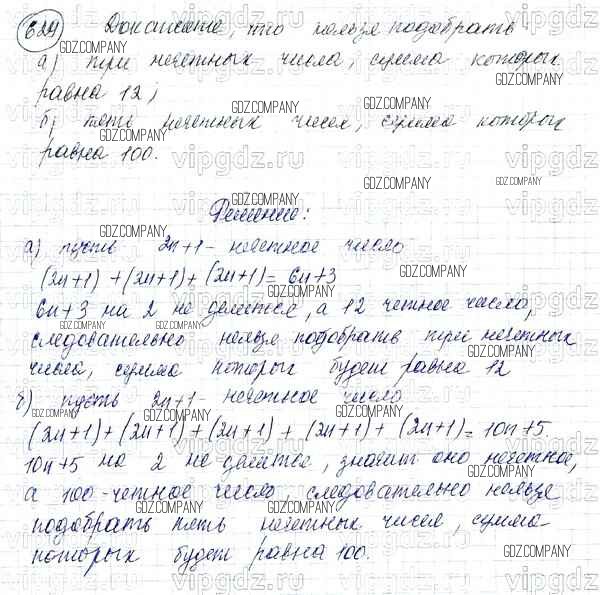 624 Докажите, что нельзя подобрать
а) три нечетных числа, сумма которых
равна 12;
б) пять нечетных чисел, сумма которых
равна 100.
Решение:
а) пусть 2n+1 - нечетное число
(2n+1) + (2n+1) + (2n+1) = 6n+3
6n+3 на 2 не делится, а 12 четное число,
следовательно нельзя подобрать три нечетных
числа, сумма которых будет равна 12
б) пусть 2n+1 - нечетное число
(2n+1) + (2n+1) + (2n+1) + (2n+1) + (2n+1) = 10n+5
10n+5 на 2 не делится, значит оно нечетное,
а 100 - четное число, следовательно нельзя
подобрать пять нечетных чисел, сумма
которых будет равна 100.
GDZ.COMPANY
vipgdz.ru